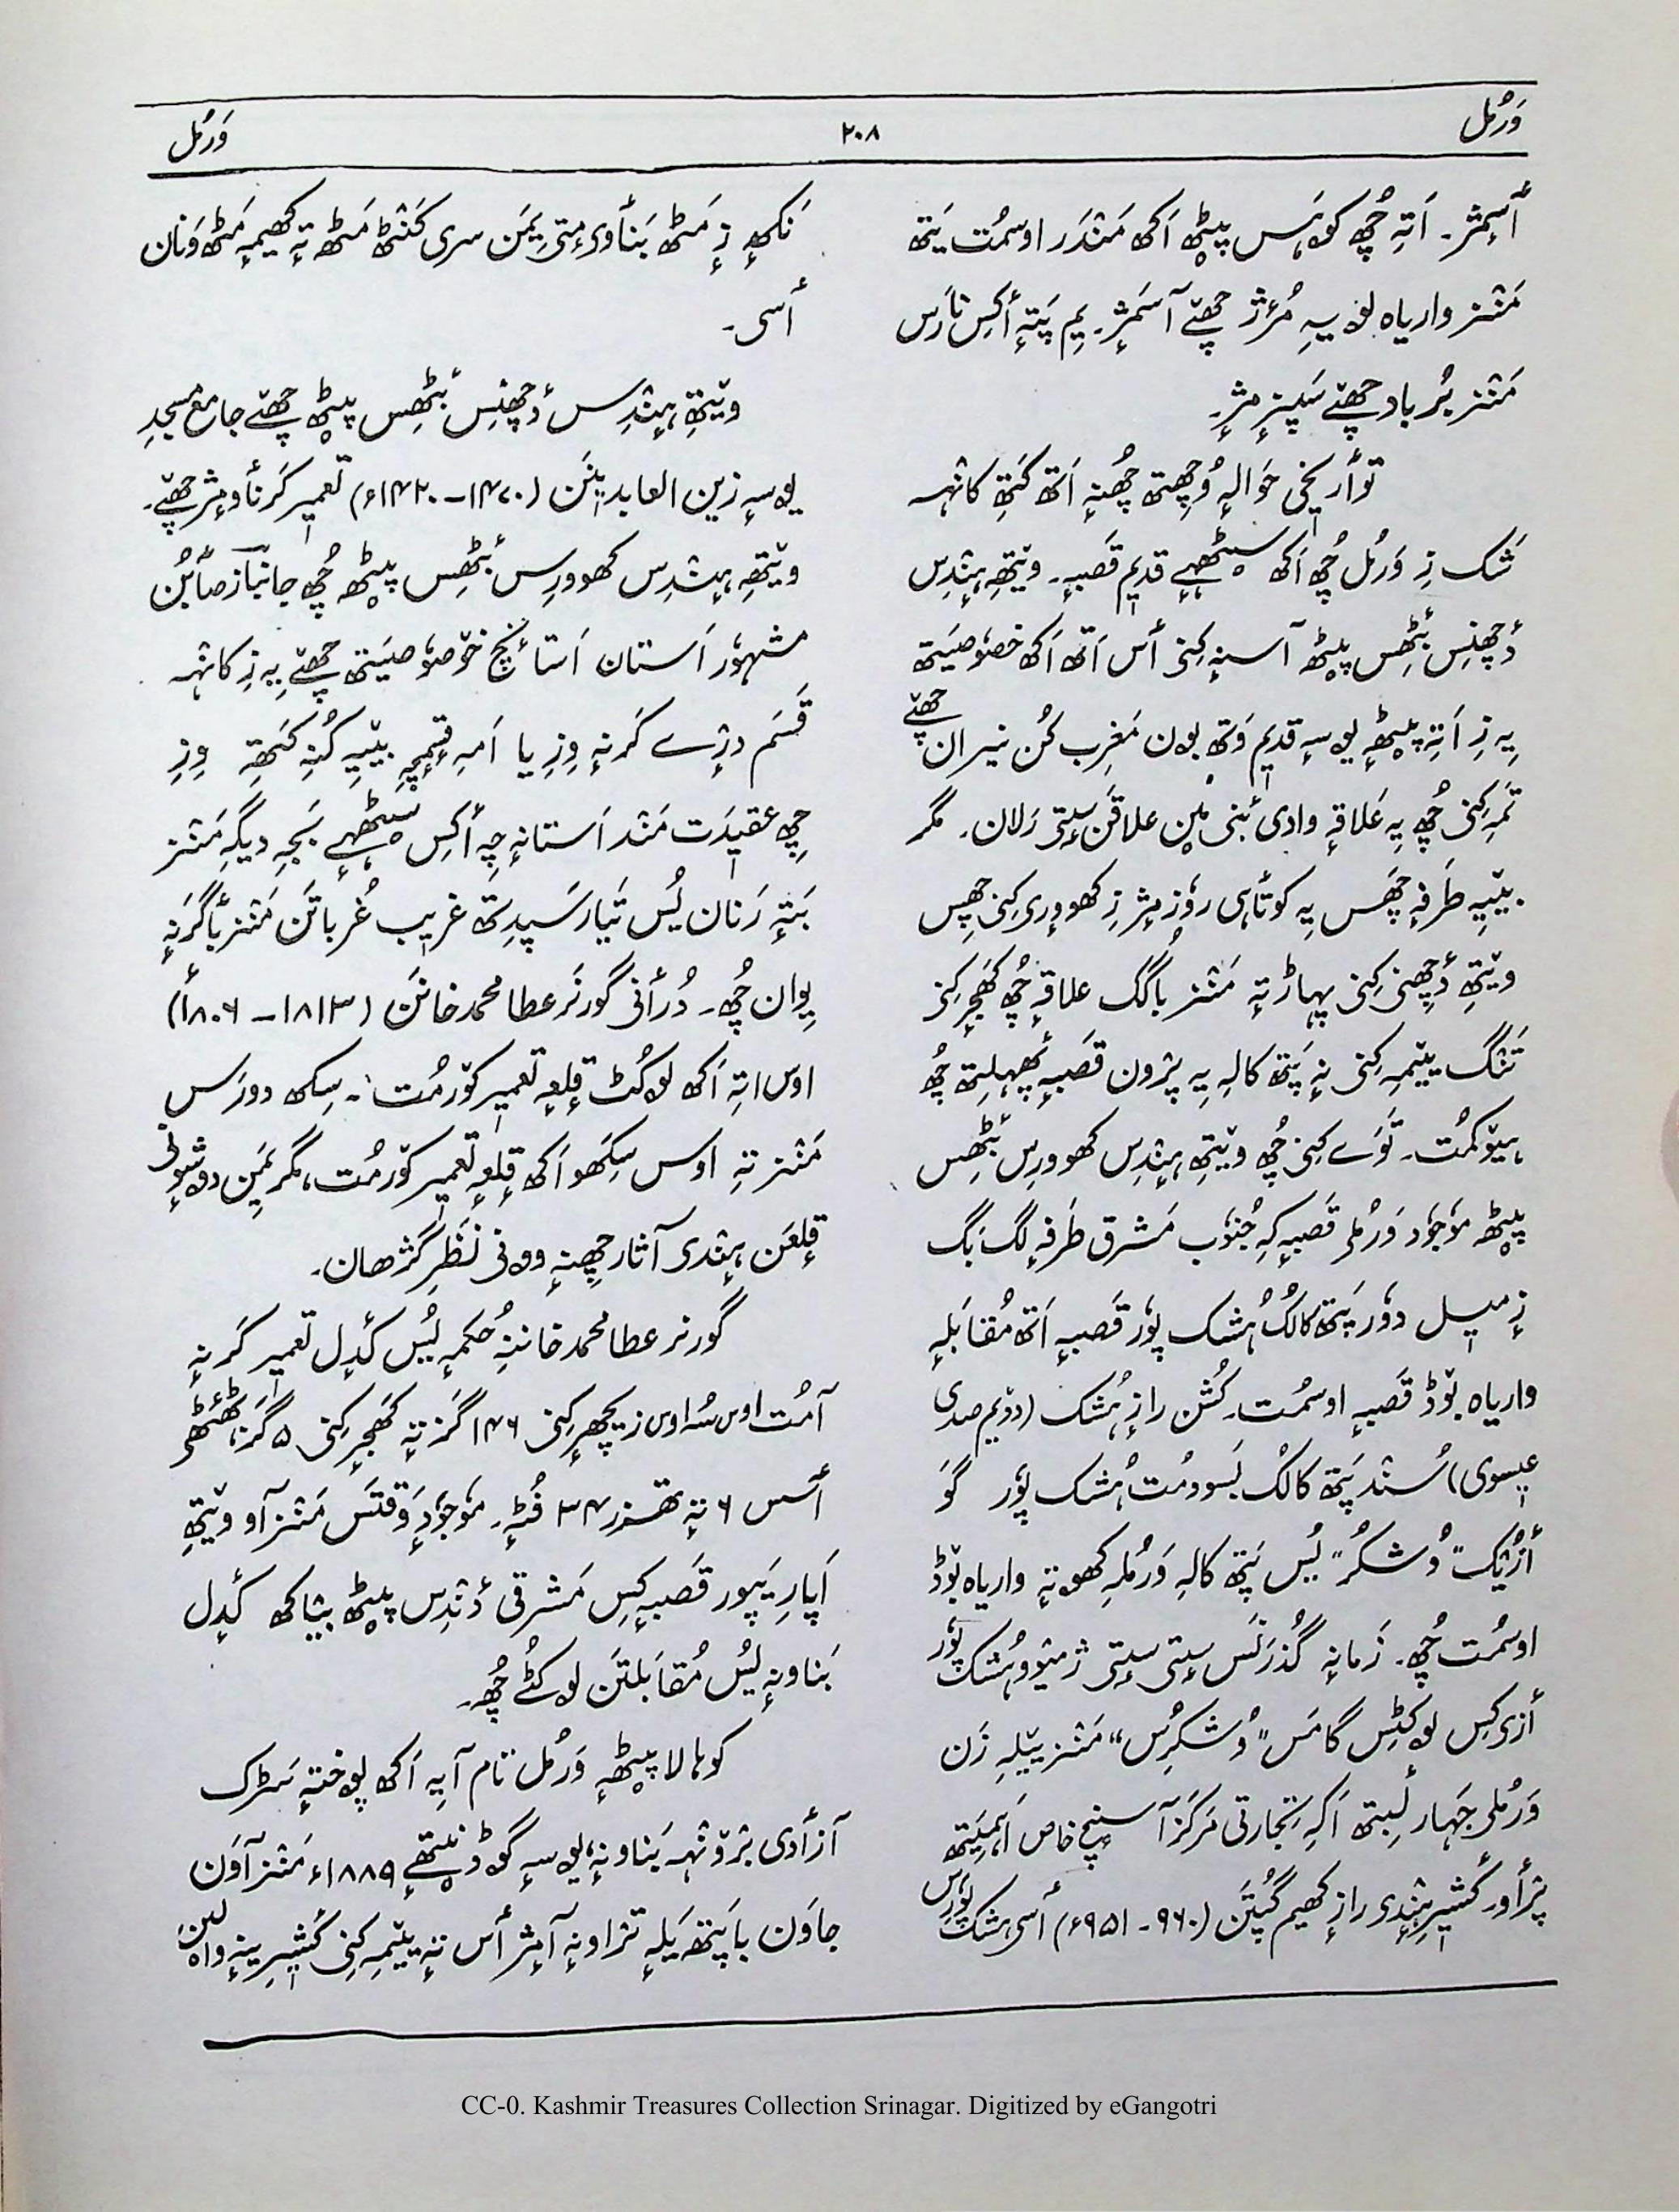 وَرمُل ۲۰۸ وَرمُل
أسمِژ۔ اَتہِ چھُ کوہَس پیٹھ اَکھ مَندَر اوسمُت یَتھ
مَنٛز واریاہ لۄب یہِ مُرٔژ چھےٚ آسمَژٕ۔ یِم پَتہٕ أکِس نارَس
مَنٛز برُباد چھےٚ سَپٕزمٕژ۔
توأریخی حَوالہٕ وُچھِتھ چھُنہٕ اَتھ کَتھِ کانٛہہ
شَک زِ وَرمُل چھُ اَکھ سیٹھہے قدیٖم قَصَبہٕ۔ وٮ۪تھِ ہِنٛدِس
دٔچھِنِس بٔٹھِس پیٹھ آسنہٕ کِنۍ أس اَتھ اَکھ خصوٗصِیَتھ
یہِ زِ اَتہِ پیٹھہٕ یۄسہٕ قدیٖم وَتھ بۄن مَغرِب کُن نیران چھےٚ
تَمہِ کِنۍ چھُ یہِ عَلاقہٕ وادی نٔنی مٕین علاقَن سٕتۍ رَلان۔ مگر
بیٚیہِ طَرفہٕ چھَس یہِ کوتأہی روٗزمٕژ زِ کھووٕرۍ کِنۍ چھِس
وٮ۪تھِ دٔچھِنۍ کِنۍ پہاڑ تہٕ مَنٛز باگُک علاقہٕ چھُ کھَجرٕ کِنۍ
تَنٛگ یٔمہِ کِنۍ نہٕ پَتھ کالہِ یہِ پرٛون قَصَبہٕ پھہلِتھ چھُ
ہیوٚکمُت۔ تَوَے کِنۍ چھُ وٮ۪تھِ ہِنٛدِس کھووٕرِس بٔٹھِس
پیٹھ موٗجوٗد وَرمُلۍ قَصبہٕ کہِ جُنوٗب مَشرِق طَرفہٕ لَگ بَگ
زٕ میٖل دوٗر پَتھ کالُک ہُشک پوٗر قَصَبہٕ اَتھ مُقابَلہٕ
واریاہ بوٚڈ قَصَبہٕ اوسمُت۔ کُشن رازٕ ہُشک (دوٚیِم صدی
عیٖسوی) سُنٛد پَتھ کالُک بَسوومُت ہُشک پوٗر گوَ
أزیُک "وُشکُر" یُس پَتھ کالہِ وَرمُلہِ کھۄتہٕ واریاہ بوٚڈ
اوسمُت چھُ۔ زَمانہٕ گُذَرنَس سٕتۍ سٕتۍ ژٕمیوٚو ہُشک پوٗر
أزۍکِس لۄکٹِس گامَس "وُشکرُس" مَنٛز ییٚلہِ زَن
وَرمُلۍ جَہار لٔبِتھ اَکہِ تجارتی مَرکَز آسنٕچ خاص اَہمِیَتھ
پرٛأو۔ کٔشیٖرِ ہِنٛدۍ رازٕ کھیم گُپتَن (۹۶۰ - ۹۵۱ء) أسۍ ہُشک پوٗرَس
نَکھہٕ زٕ مَٹھ بَنأوۍمٕتۍ یِمَن سری کَنٹھ مَٹھ تہٕ کھیمہٕ مَٹھ وَنان
أسۍ۔
وٮ۪تھِ ہِنٛدِس دٔچھِنِس بٔٹھِس پیٹھ چھےٚ جامع مسجدِ
یۄسہٕ زین العابدیٖنَن (۱۴۷۰ - ۱۴۲۰ء) تعمیٖر کَرنأومٕژ چھےٚ۔
وٮ۪تھِ ہِنٛدِس کھووٕرِس بٔٹھِس پیٹھ چھُ جانباز صأبُن
مشہوٗر اَستان اَستأنٕچ خۄصوٗصِیَتھ چھےٚ یہِ زِ کانٛہہ
قَسَم درٛیے کَرنہٕ وِزِ یا اَمہِ قٕسمٕچہِ بیٚیہِ کُنہِ کَتھِ وِزِ
چھِ عقیٖدَت مَنٛد اَستانہٕ چہِ أکِس سیٹھہے بَجہِ دیگہِ مَنٛز
بَتہٕ رَنان یُس تَیار سَپدِتھ غریٖب غُرباتَن مَنٛز بأگرَنہٕ
یِوان چھُ۔ دُرأنی گورنَر عطا محمد خانَن (۱۸۱۳ - ۱۸۰۶ء)
اوس اتہِ اَکھ لۄکُٹ قلعہٕ تعمیٖر کوٚرمُت۔ سِکھ دورَس
مَنٛز تہِ اوس سِکھَو اَکھ قلعہٕ تعمیٖر کوٚرمُت، مگر یِمَن دۄشوٕنۍ
قلعَن ہِنٛدۍ آثار چھِنہٕ وۄنۍ نَظرِ گژھان۔
گورنر عطا محمد خاننہِ حُکمہٕ یُس کَدل تعمیٖر کَرنہٕ
آمُت اوس سُہ اوس زیچھرٕ کِنۍ ۱۴۶ گَز تہٕ کھَجرٕ کِنۍ ۵ گَز،
أسس ۶ تہٕ تھٔزر ۳۴ فُٹہٕ۔ موٗجوٗدٕ وَقتَس مَنٛز آو وٮ۪تھِ
اَپارِ یَپور قَصبہٕ کِس مَشرقی دٔنٛدِس پیٹھ بیٛاکھ کَدل
بَناونہٕ یُس مُقابلتَن لۄکُٹ چھُ۔
کوہالا پیٹھہٕ وَرمُل تام آیہِ اَکھ پۄختہٕ سَڑک
آزأدی برٛونٛہہ بَناونہٕ، یۄسہٕ گوڈنیتھے ۱۸۸۹ء مَنٛز آوَن
جاوَن باپَتھ یَلہٕ ترٛاونہٕ آمٕژ أس تہٕ یٔمہِ کِنۍ کٔشیٖرِ
CC-0. Kashmir Treasures Collection Srinagar. Digitized by eGangotri